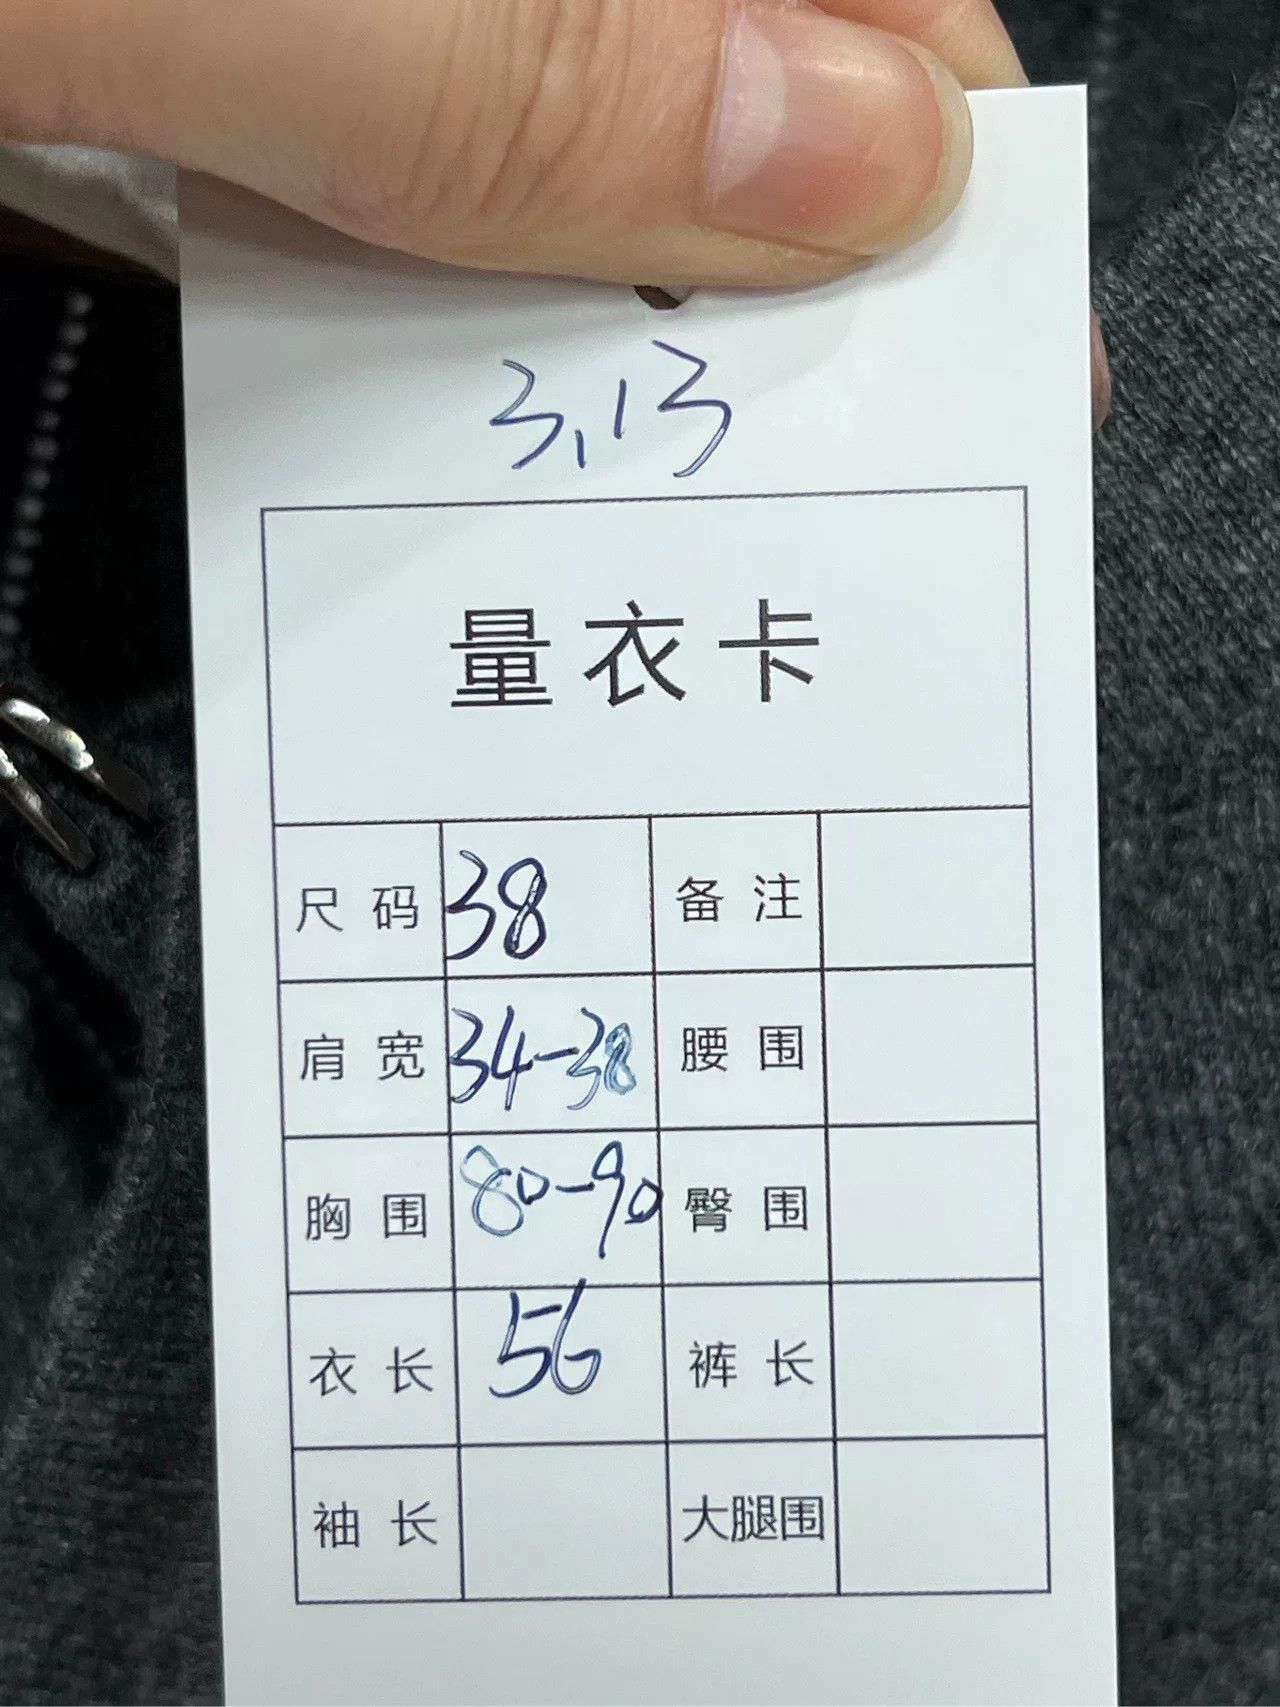 3,13
量衣卡
尺码 38 备注
肩宽 34-38 腰围
胸围 80-90 臀围
衣长 56 裤长
袖长 大腿围